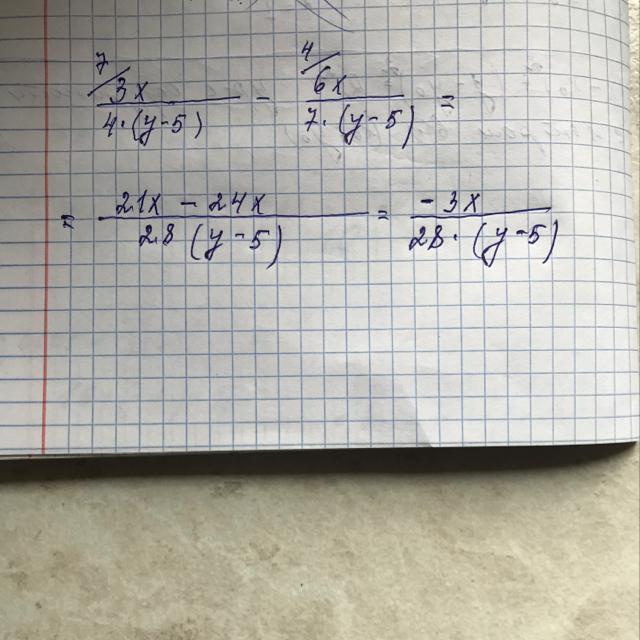 7/ 4/
3x / 4·(y-5) - 6x / 7·(y-5) =
= 21x - 24x / 28 (y-5) = -3x / 28·(y-5)